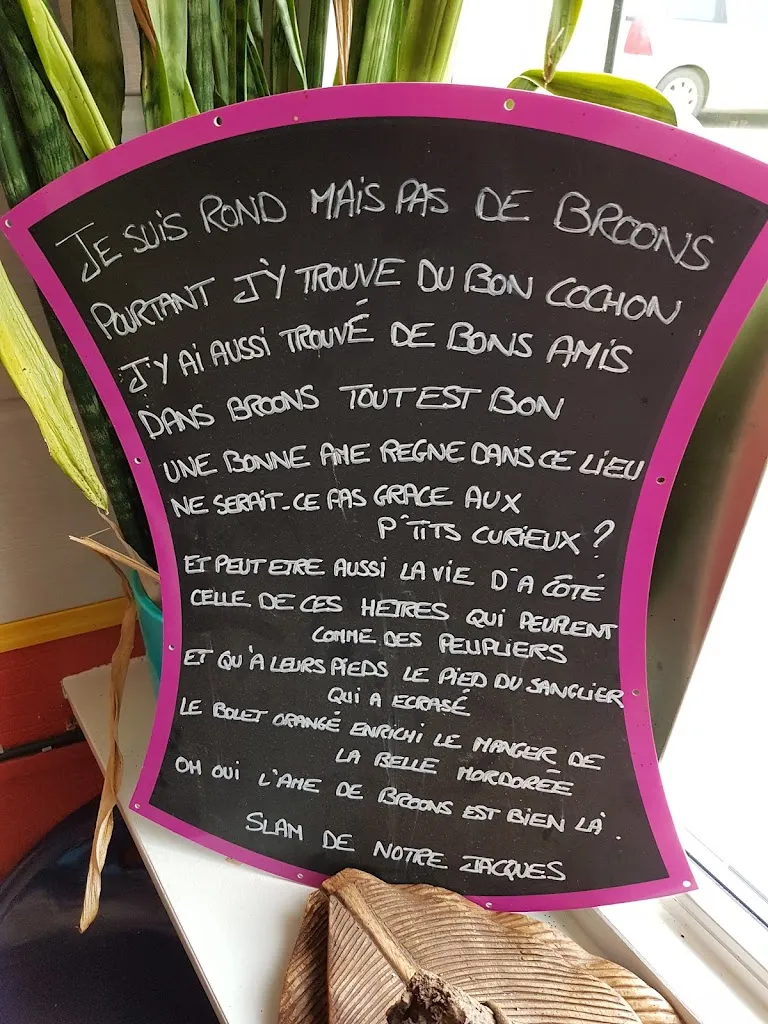 JE SUIS ROND MAIS PAS DE BROONS
POURTANT J'Y TROUVE DU BON COCHON
J'Y AI AUSSI TROUVÉ DE BONS AMIS
DANS BROONS TOUT EST BON
UNE BONNE AME REGNE DANS CE LIEU
NE SERAIT-CE PAS GRACE AUX
P'TITS CURIEUX ?
ET PEUT ETRE AUSSI LA VIE D'A CÔTÉ
CELLE DE CES HETRES QUI PEUPLENT
COMME DES PEUPLIERS
ET QU'A LEURS PIEDS LE PIED DU SANGLIER
QUI A ECRASÉ
LE BOLET ORANGÉ ENRICHI LE MANGER DE
LA BELLE MORDORÉE
OH OUI L'AME DE BROONS EST BIEN LÀ.
SLAM DE NOTRE JACQUES